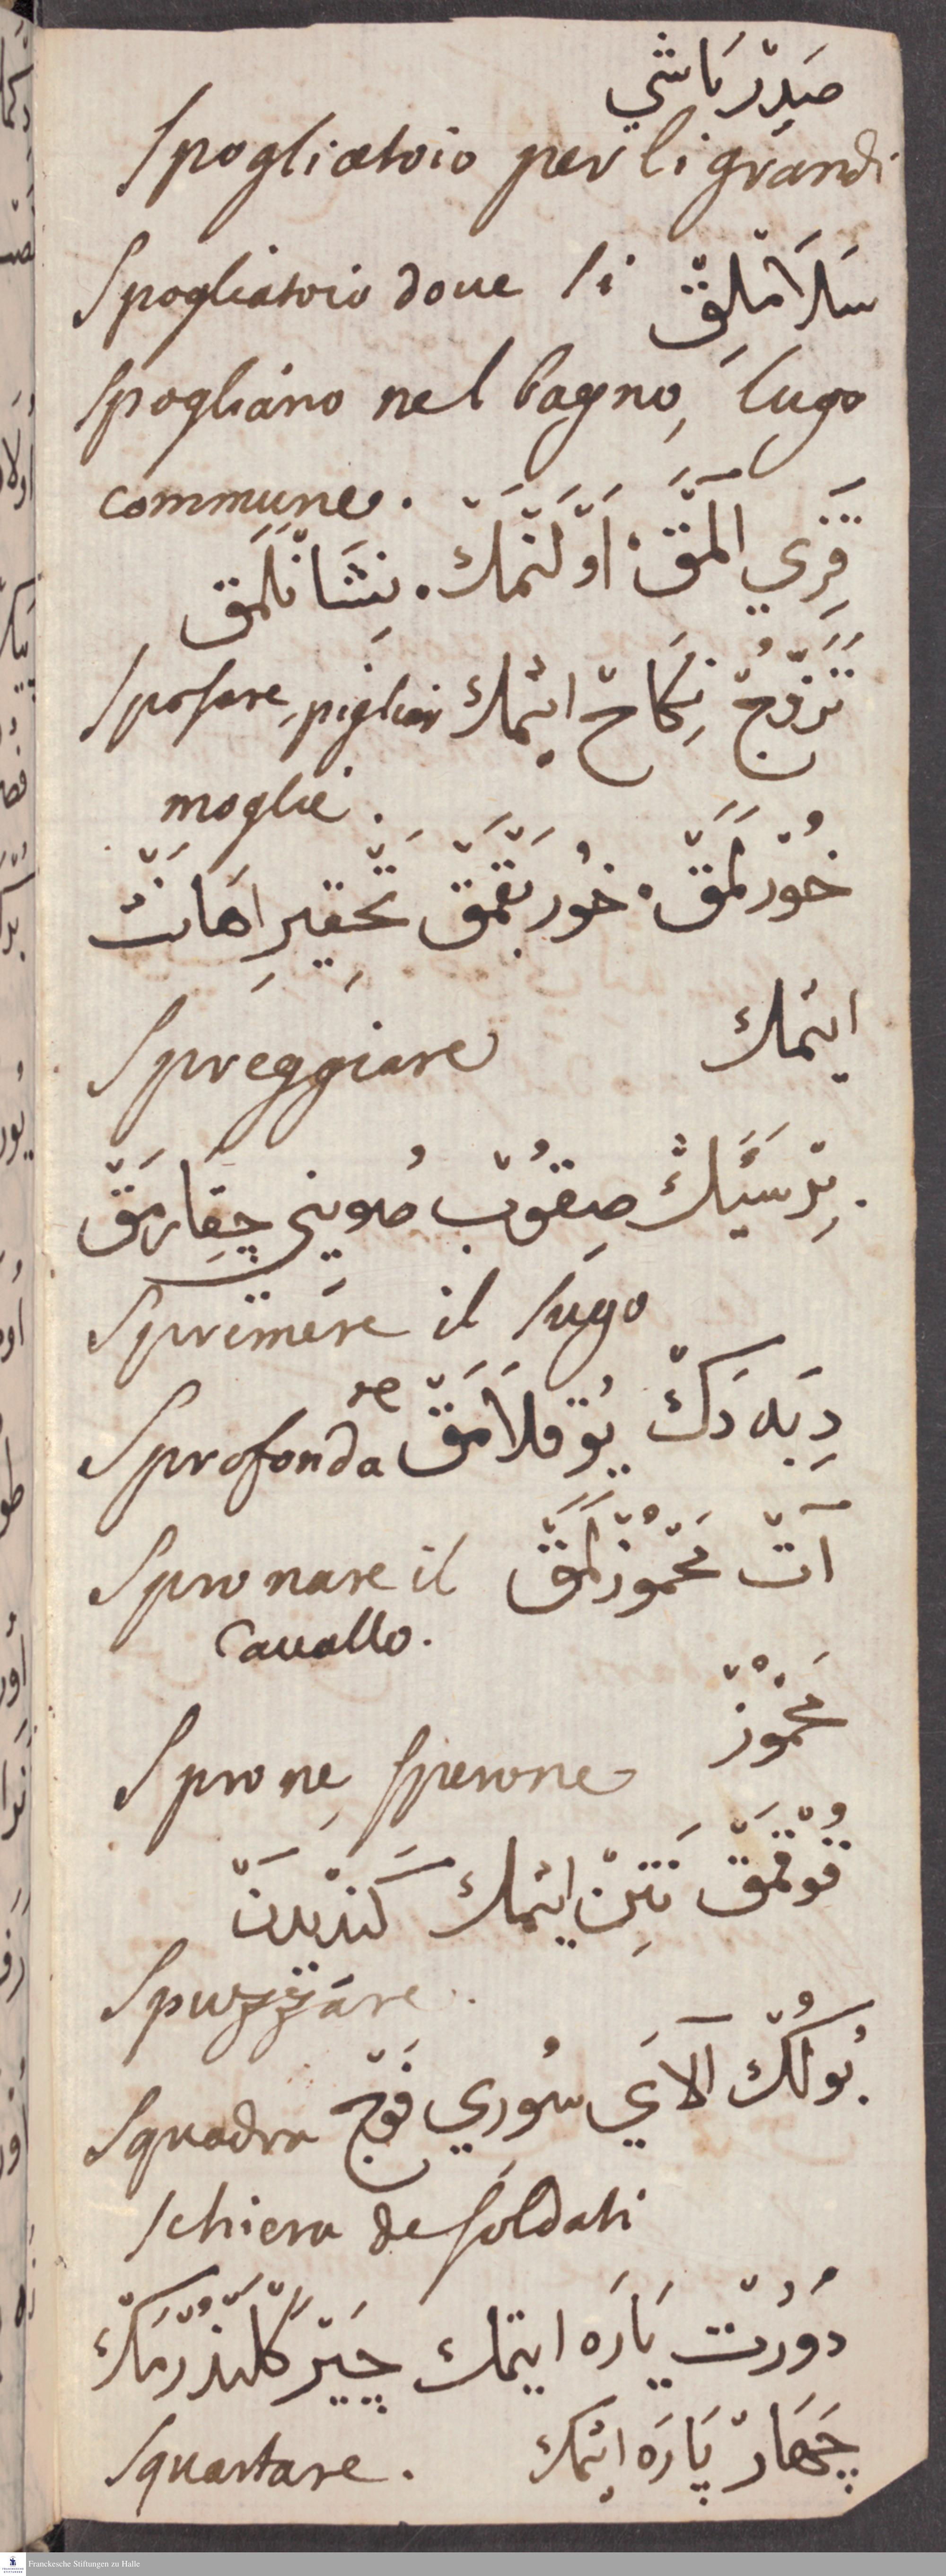 صَدِرْ بَاشي
Spogliatoio per li grandi
Spogliatoio doue si سَلَامْلِقْ
spogliano nel bagno, lugo
commune.
قِزِي اَلْمَقْ، اَوْلَنْمَكْ. نِشَانْلَمَق
تَزَوُّجْ نِكَاحْ ايتْمك Sposare, pigliar
moglie.
خُورْلَمَقْ، خُورْ بَقْمَقْ تَحْقِيرِ اِهَانَتْ
Spreggiare ايتمك
بِرْ سَيِّكْ صِقُوبْ صُويني چِقَارمَقْ
Sprimere il sugo
Sprofondare دِبَه دَكْ يُوقلَامَقْ
Spronare il آتْ مَحْمُوزْلَمَقْ
Cauallo.
مَحْمُوزْ
Sprone, sperone
قُوْقْمَقْ نَتِنْ ايتمك كَنْدِيدَنْ
Spuzzare.
Squadra بُولُكْ آلَايْ سُوري فَوْجْ
schiera de soldati
دُورْتْ پَارَه ايتمك چَيْرَكْلَنْدُرْمَكْ
Squartare. چَهَارْ پَارَه ايتمك
Franckesche Stiftungen zu Halle